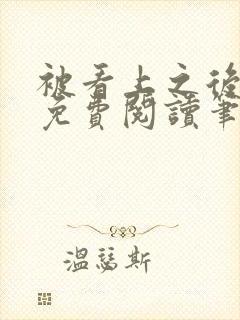 被看上之後
免費閱讀筆
溫瑟斯